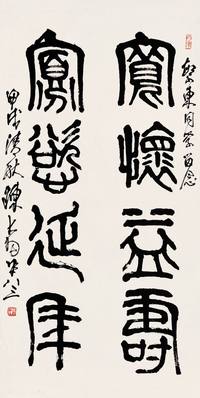 東同留念
寬懷益壽
寡慾延年
甲戌清秋陳大羽年八三